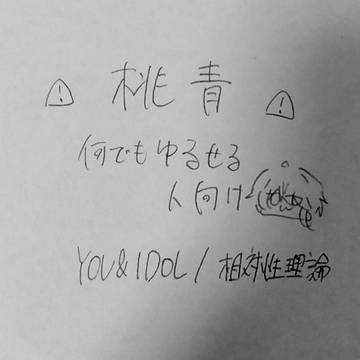 ⚠ 桃青 ⚠
何でもゆるせる
人向け
YOU&IDOL/相対性理論